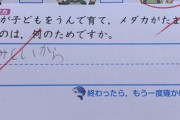 が子どもをうんで育て、メダカがたま
のは、何のためですか。
みにくいから
終わったら、もう一度確か